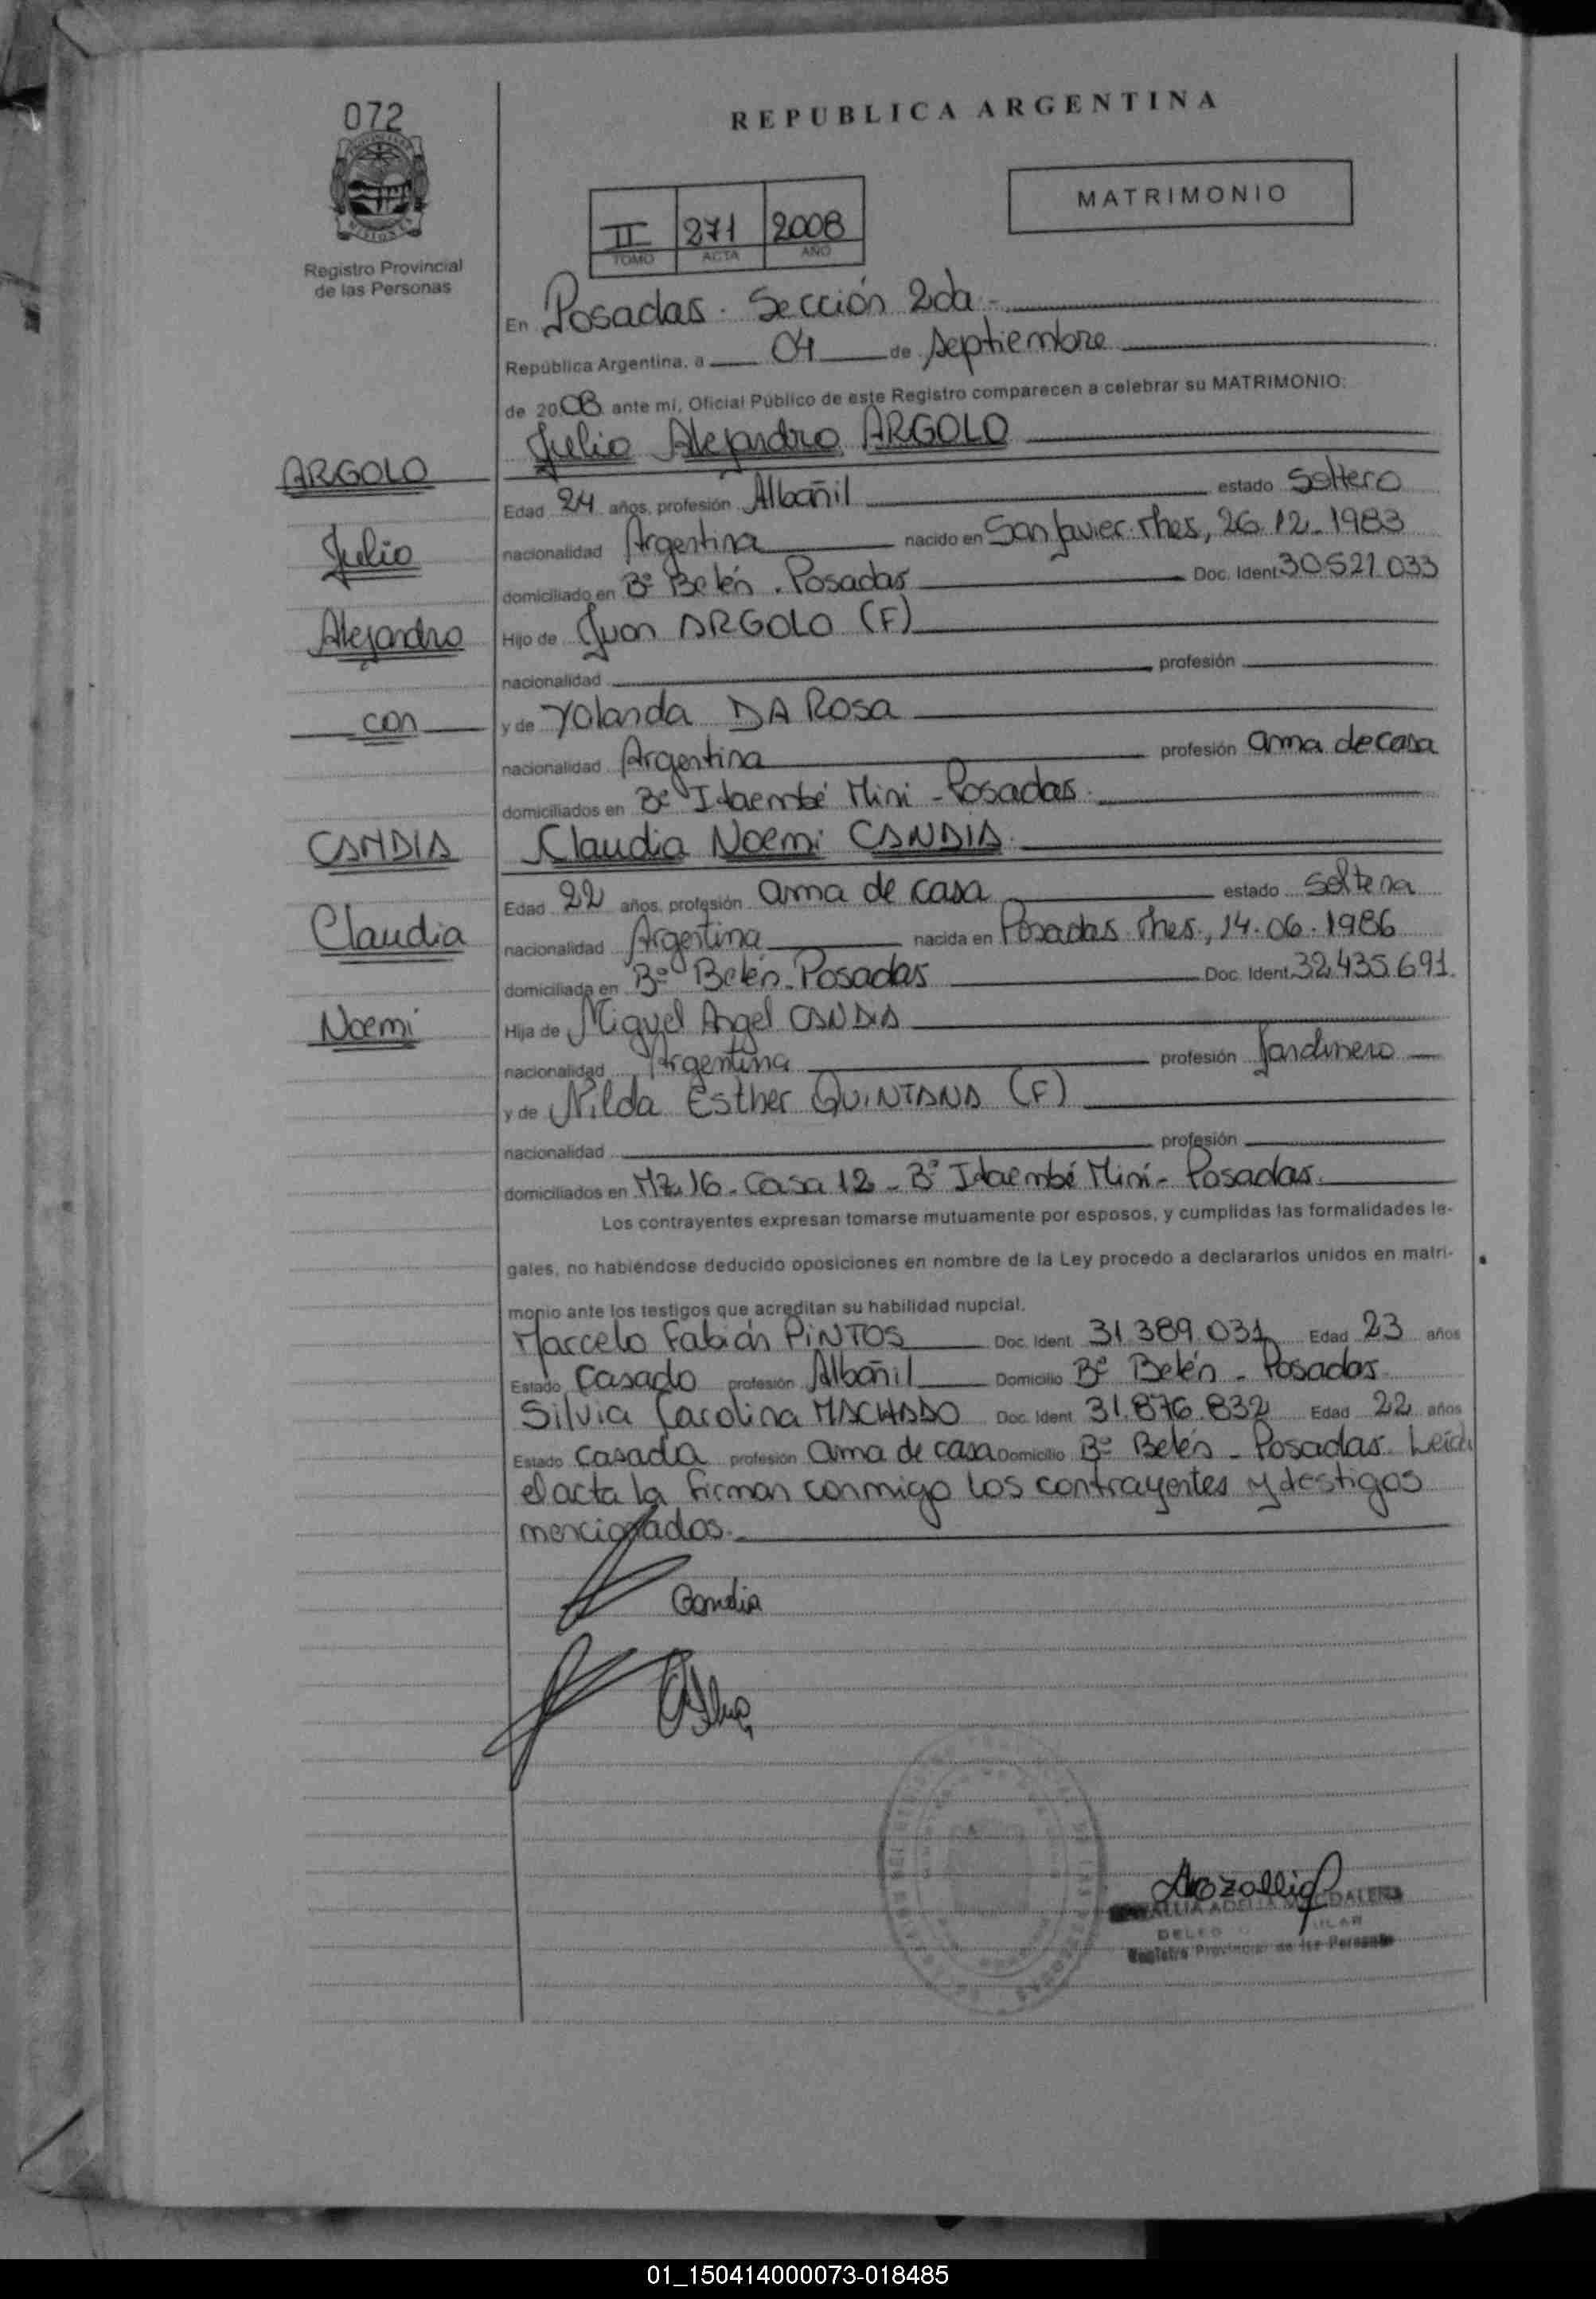 072
REPUBLICA ARGENTINA
MATRIMONIO
II 271 2008
TOMO ACTA AÑO
Registro Provincial
de las Personas
En Posadas. Sección 2da -
República Argentina, a 04 de Septiembre
de 2008 ante mí, Oficial Público de este Registro comparecen a celebrar su MATRIMONIO:
Julio Alejandro ARGOLO
ARGOLO
Edad 24 años, profesión Albañil estado Soltero
Julio
nacionalidad Argentina nacido en San Javier. Mnes, 26.12.1983
domiciliado en Bº Belén. Posadas Doc. Ident. 30.521.033
Alejandro
Hijo de Juan ARGOLO (F)
nacionalidad profesión
con
y de Yolanda DA ROSA
nacionalidad Argentina profesión ama de casa
domiciliados en Bº Itaembé Mini - Posadas.
CANDIA
Claudia Noemi CANDIA.
Edad 22 años, profesión ama de casa estado Soltera
Claudia
nacionalidad Argentina nacida en Posadas. Mnes., 14.06.1986
domiciliada en Bº Belén. Posadas Doc. Ident. 32.435.691.
Noemi
Hija de Miguel Angel CANDIA
nacionalidad Argentina profesión Jardinero
y de Nilda Esther QUINTANA (F)
nacionalidad profesión
domiciliados en Mz. 16 - Casa 12 - Bº Itaembé Mini - Posadas.
Los contrayentes expresan tomarse mutuamente por esposos, y cumplidas las formalidades le-
gales, no habiéndose deducido oposiciones en nombre de la Ley procedo a declararlos unidos en matri-
monio ante los testigos que acreditan su habilidad nupcial.
Marcelo Fabián PINTOS Doc. Ident. 31.389.031 Edad 23 años
Estado Casado profesión Albañil Domicilio Bº Belén - Posadas
Silvia Carolina MACHADO Doc. Ident. 31.876.832 Edad 22 años
Estado Casada profesión ama de casa Domicilio Bº Belén - Posadas. Leida
el acta la firman conmigo los contrayentes y testigos
mencionados.
Candia
ADELIA MAGDALENA
Registro Provincial de las Personas
01_150414000073-018485